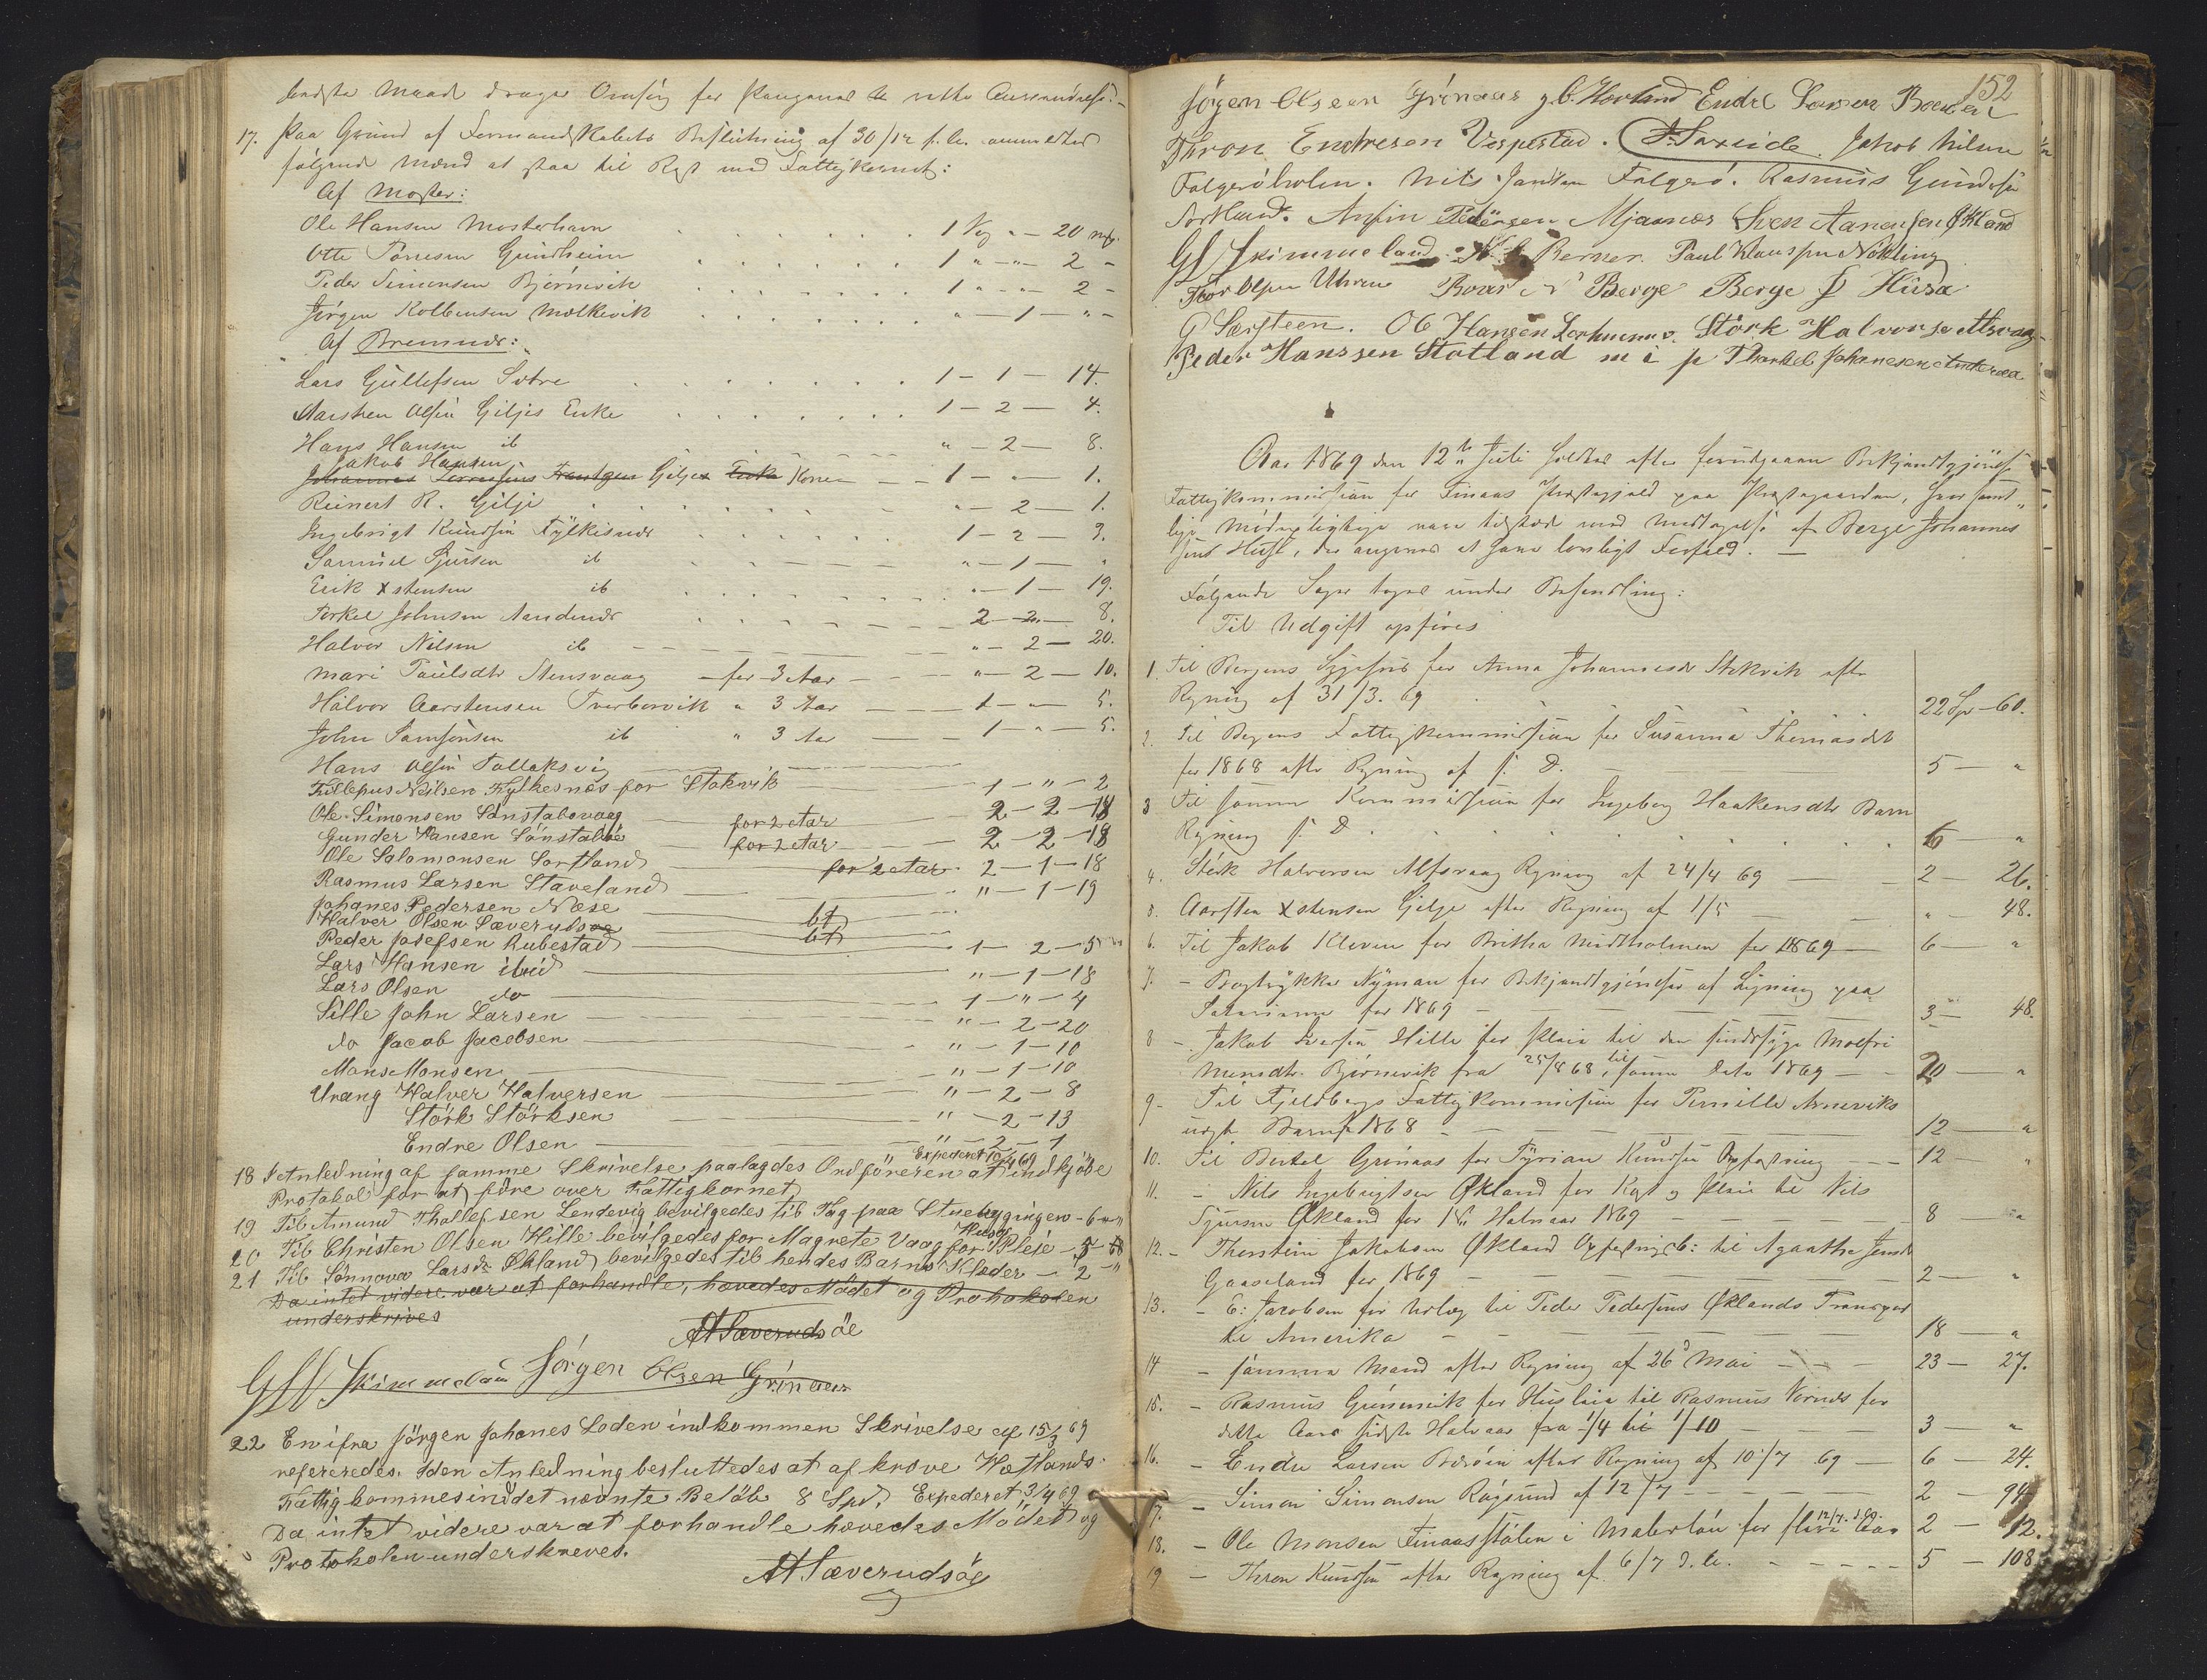 bedste Maade drage Omsorg for Pengenes rette Anvendelse. -
17. Paa Grund af Formandskabets Beslutning af 30/12 f. A. anmeldtes
følgende Mænd at staa til Rest med Fattigkornet:
Af Moster:
Ole Hansen Mosterhavn 1 Vog " - 20 mk.
Otte Tørresen Gundheim 1 " - " 2 -
Peder Simonsen Bjørnevik 1 " - " 2 -
Jørgen Kolbensen Mælkevik " - 1 - " -
Af Bremnæs:
Lars Gullefsen Sætre 1 - 1 - 14.
Aarsten Olsen Giljes Enke 1 - 2 - 4.
Hans Hansen ib " - 2 - 8.
Jakob Hansen
Johannes Giljes Enke Kone - - 1 - " - 1.
Reinert R. Gilje " - 2 - 1.
Ingebrigt Knudsen Fylkisnæs 1 - 2 - 3.
Samuel Sjursen ib " - 1 - "
Erik Xstensen ib " - 1 - 19.
Torkel Johnsen Nandnæs 2 - 2 - 8.
Halvor Nilsen ib " - 2 - 20.
Mari Poulsdtr Stensvaag - for 3 Aar - " - 2 - 10.
Halvor Aarstensen Tverborvik " 3 Aar 1 - " - 5.
John Samsonsen ib " 3 Aar 1 - " - 5.
Hans Olsen Tollaksvig
Fillepus Neilsen Fylkesnæs for Stokvik 1 - " - 2
Ole Simonsen Sønstabøvaag for 2 Aar 2 - 2 - 18
Gunder Hansen Sønstabøe for 2 Aar 2 - 2 - 18
Ole Salomonsen Sortland for 2 Aar 2 - 1 - 18
Rasmus Larsen Staveland " - 1 - 19
Johanes Pedersen Næse
Halver Olsen Sæverudsøe bt
Peder Josefsen Rubestad bt 1 - 2 - 5
Lars Hansen ibid " - 1 - 18
Lars Olsen do 1 - " - 4
Sille John Larsen " - 2 - 20
do Jacob Jacobsen " - 1 - 10
Mons Monsen " - 1 - 10
Urang Halver Halversen " - 2 - 8
Störk Störksen " - 2 - 13
Endre Olsen " - 2 - 1
Expederet
18 I Anledning af samme Skrivelse paalagdes Ordføreren at indkjøbe
Protokol for at føre over Fattigkornet
19 Til Amund Thollefsen Lendevig bevilgedes til Tag paa Stuebygingen - 6 - "
20 Til Christen Olsen Hille bevilgedes for Magrete Vaag for Pleje
21 Til Sønnova Larsd Økland bevilgedes til hendes Barns Klæder - 2 - "
Da intet videre var at forhandle, hævedes Mødet og Protokolen
underskrives
AHSæverudsøe
GHSkimmeland Jørgen Olsen Grinaas
22 En ifra Jörgen Johanes Loden indkommen Skrivelse af 15/3 69
refereredes. I den Anledning besluttedes at afkræve Hætlands
Fattigkommesind det nævnte Beløb 8 Spd. Expederet 3/4 69
Da intet videre var at forhandle hævedes Mödet og
Protokolen underskreves.
AHSæverudsøe
152
Jørgen Olsen Grinaas J. C. Hovland Endre Larsen Børøen
Thron Endresen Vespestad. Jakob Nilsen
Folgerøholm. Nils Jansen Folgerø. Rasmus Gundersen
Sortland. Anfin Pedersen Mjaanæs Sven Aanensen Økland
GHSkimmeland. Berner. Paul Klausen Nøkling
Thor Olsen Uhren Berge Berge J Husa
G Larsteen. Ob Hansen Störk Halvorse Alfsvaag
Peder Hanssen Stotland m i p Thorkel Johanesen
Aar 1869 den 12te Juli holdtes efter forudgaaen Bekjendtgjørelse
Fattigkommission for Finaas Præstegjeld paa Præstegaarden, hvor samt-
lige Mødepligtige vare tilstede med Undtagelse af Berge Johannes
sens Huse, der angaves at have lovligt Forfald. -
Følgende Sager toges under Behandling:
Til Udgift opføres
1. Til Bergens Sygehus for Anna Johannesdr Stokvik efter
Regning af 31/3. 69 22 Sp - 60.
2. Til Bergens Fattigkommission for Susanna Thomasdtr
for 1868 efter Regning af s. D. 5 - "
3 Til samme Kommission for Ingeborg Haakensdtrs Barn
Regning s. D 6 - "
4. Størk Halvorsen Alfsvaag Regning af 24/4 69 2 - 26.
5. Aarsten Xstensen Gilje efter Regning af 1/5 " - 48.
6. Til Jakob Kleven for Britha Midtholmen for 1869 6 - "
7. - Bogtrykker Nyman for Bekjendtgjørelse af Ligning paa
for 1869 3 - 48.
8 - Jakob Iversen Hille for Pleie til den sindssyge Malfri
Monsdtr. Bjørnevik fra 25/8 68 til samme Dato 1869 - - 20 - "
9 - Til Fjeldbergs Fattigkommission for Pernille Arneviks
uægte Barn for 1868 12 - "
10. Til Bertel Grinaas for Tyrian Knudsen Opfostring 12 - "
11. - Nils Ingebrigtsen Økland for Kost og Pleie til Nils
Sjursen Økland for 1ste Halvaar 1869 8 - "
12. - Thorstein Jakobsen Økland Opfostringsb: til Agaatha Jensdr
Gaaseland for 1869 2 - "
13. - E: Jacobsen for Udlæg til Peder Pedersens Øklands Transport
til Amerika 18 - "
14 - samme Mand efter Regning af 26d Mai 23 - 27.
15. - Rasmus Grinnevik for Husleie til Rasmus Vornæs for
dette Aars sidste Halvaar fra 1/4 til 1/10 3 - "
16. - Endre Larsen Børøen efter Regning af 10/7 69 6 - 24.
17. - Simon Simonsen Røgsund af 12/7 2 - 94
18. - Ole Monsen Finaasstølen i Materløn for flere Aar 2 - 12.
19 - Thron Knudsen efter Regning af 6/7 d. A. 5 - 108